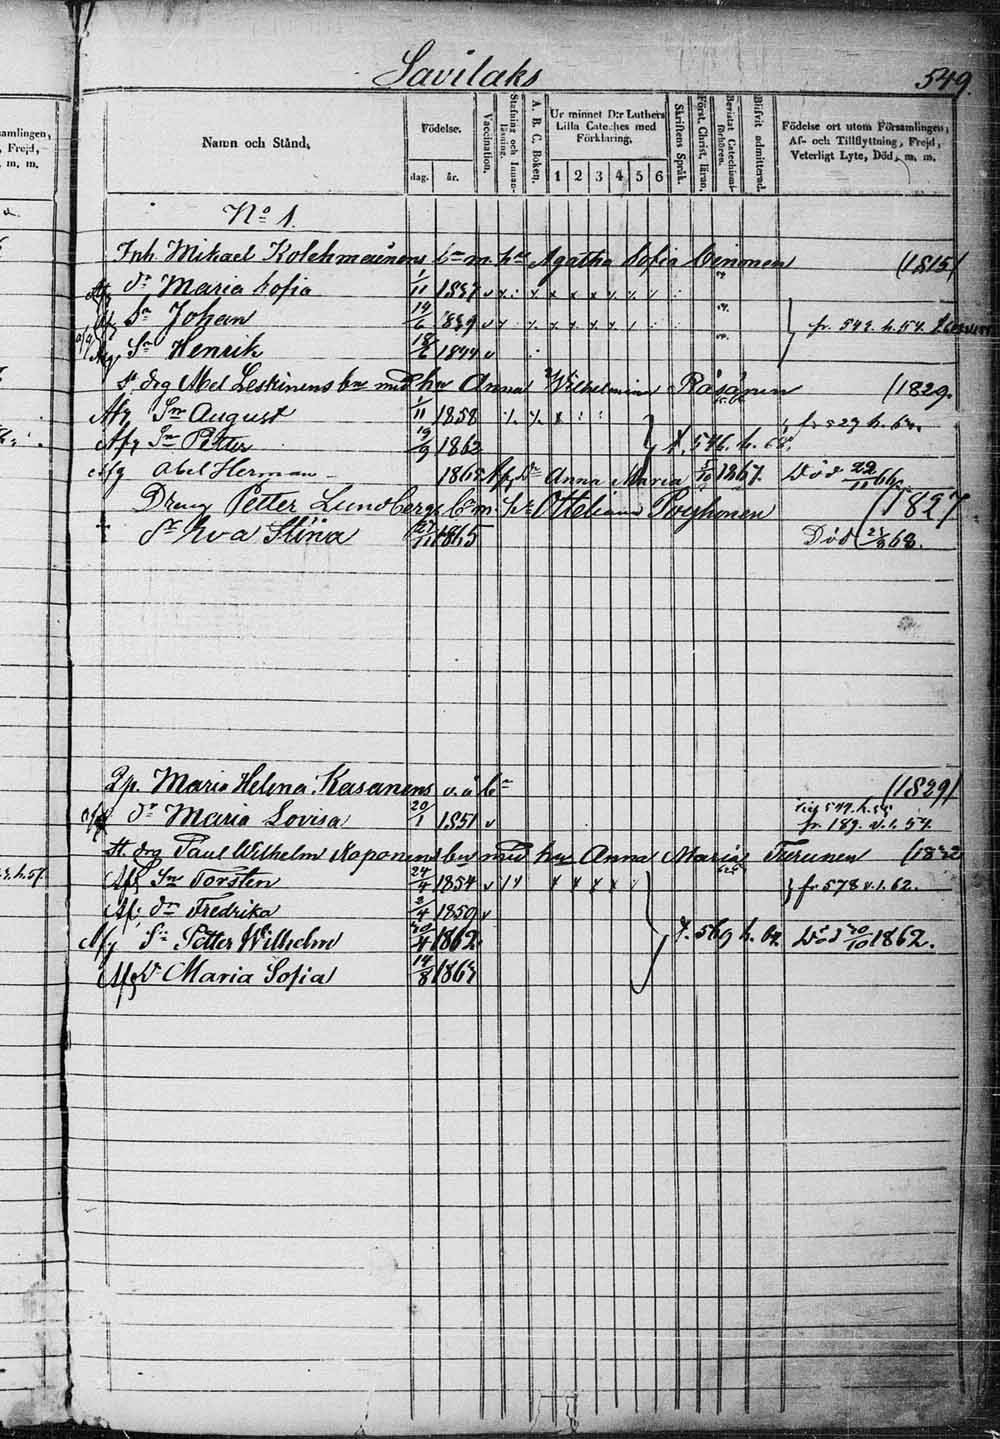 Savilaks 549.
Namn och Stånd,
Födelse.
dag. år.
Vaccination.
Stafning och Innanläsning.
A. B. C. Boken.
Ur minnet D:r Luthers Lilla Cateches med Förklaring,
1 2 3 4 5 6
Skriftens Språk.
Först. Christ. läran.
Bevistat Catechismiförhören.
Blifvit admitterad.
Födelse ort utom Församlingen, Af- och Tillflyttning, Frejd, Veterligt Lyte, Död, m. m.
amlingen,
Frejd,
m. m.
No 1.
Inh. Mikael Kolehmainens bn m. hu Agatha Sofia (1815)
dr Maria Sofia 1/11 1837 v
Sn Johan 14/6 1839 v fr. 542. h. 54.
Sn Henrik 18/6 1844 v
drg Abel Leskinens bn med hu Anna Wilhelmina Räsänen (1829.
Afg Sn August 1/11 1858
Afg Sn Petter 19/9 1862 f. 546. h. 68.
Afg Abel Herman 1865 Afg Dr Anna Maria 5/10 1867. Död 22/11 66.
Dreng Petter Lundbergs bn m. hu Ottiliana Poyhonen (1827
+ dr Eva Stina 27/11 1865 Död 68.
Maria Helena Kasanens o.ä. bn (1829)
dr Maria Lovisa 20/1 1851 v fr. 189. v. i. 54.
St. drg Paul Wilhelm Kaponens bn med hu Anna Maria Turunen
Afg Sn Torsten 24/4 1854 v fr 578 v. i. 62.
Afg dr Fredrika 2/4 1859 v
Afg Sn Petter Wilhelm 1862 f. 569 h. Död 20/10 1862.
Afg Dr Maria Sofia 14/8 186